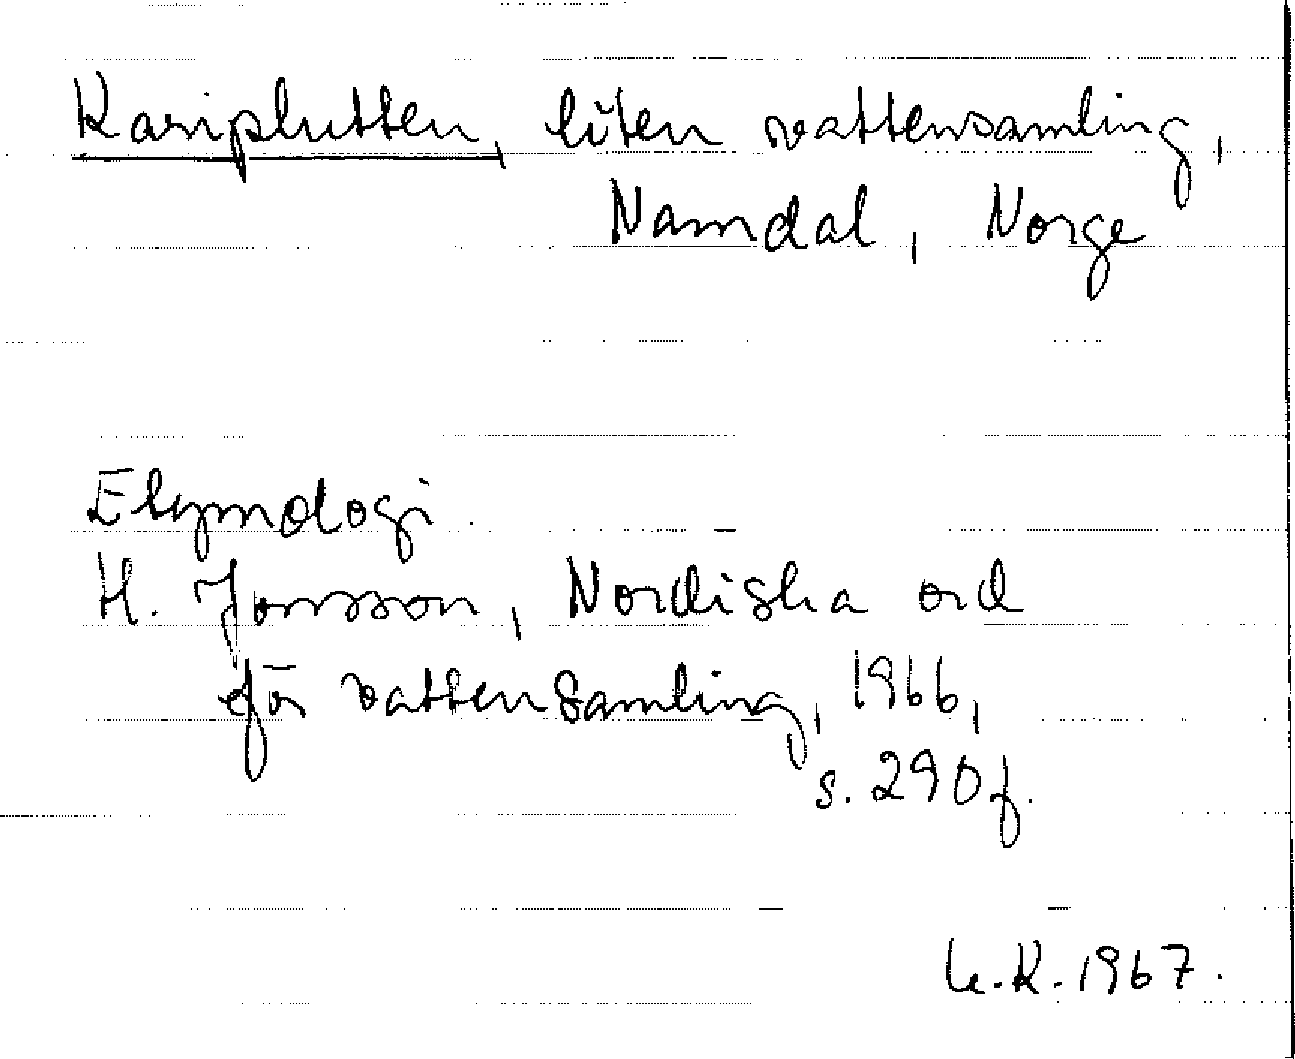 Kariplutten, liten vattensamling,
Namdal, Norge
Etymologi
H. Jonsson, Nordiska ord
för vattensamling, 1966,
s. 290 f.
K. 1967.